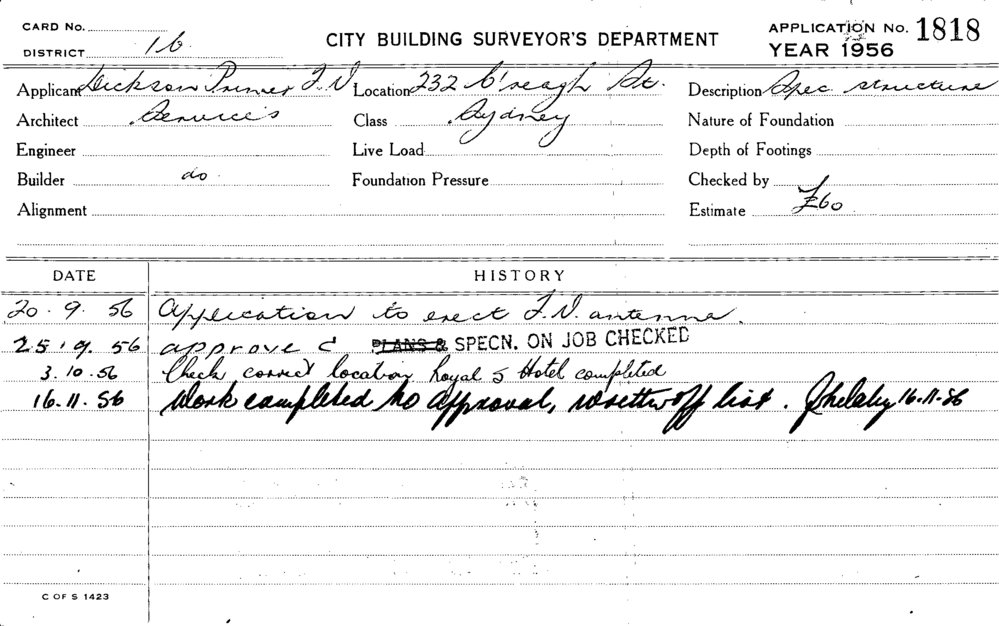 CARD No.
DISTRICT 16
CITY BUILDING SURVEYOR'S DEPARTMENT
APPLICATION No. 1818
YEAR 1956
Applicant Dickson Primer T.V Location 232 C'reagh St. Description Spec. structure
Architect Services Class Sydney Nature of Foundation
Engineer Live Load Depth of Footings
Builder do Foundation Pressure Checked by
Alignment Estimate £60
DATE HISTORY
20.9.56 Application to erect T.V. antenna.
25.9.56 approved PLANS & SPECN. ON JOB CHECKED
3.10.56 Check correct location Royal Hotel completed
16.11.56 Work completed no approval, list. 16-11-56
C OF S 1423